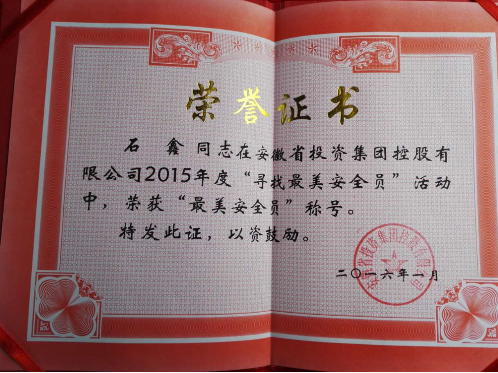 荣誉证书
石鑫同志在安徽省投资集团控股有
限公司2015年度“寻找最美安全员”活动
中，荣获“最美安全员”称号。
特发此证，以资鼓励。
安徽省投资集团控股有限公司
二〇一六年一月